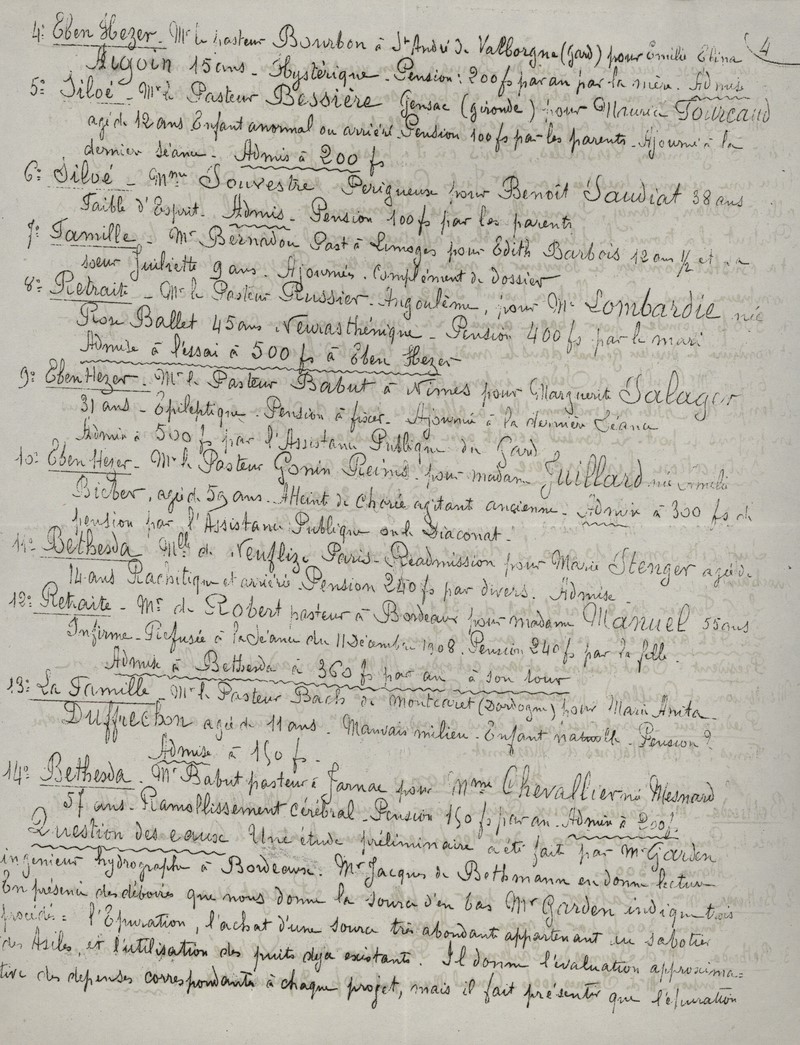 4
4º Eben Hezer. Mr le pasteur Bourbon à St André de Valborgne (Gard) pour Emilie Elina
Aigoin 15 ans - Hystérique - Pension: 200 fs par an par la mère. Admise
5º Siloé - Mr le Pasteur Bessière Gensac (gironde) pour Maurice Fourcaud
agé de 12 ans Enfant anormal ou arriéré. Pension 100 fs par les parents - Ajourné à la
dernier séance - Admis à 200 fs
6º Siloé - Mme Souvestre Perigueux pour Benoît Saudiat 38 ans
Faible d'Esprit. Admis - Pension 100 fs par les parents
7º Famille - Mr Bernadou Past à Limoges pour Edith Barbois 12 ans 1/2 et sa
soeur Juliette 9 ans - Ajournés - Complément de dossier
8º Retraite - Mr le Pasteur Russier - Angoulême, pour Me Lombardie née
Rose Ballet 45 ans Neurasthénique - Pension 400 fs par le mari
Admise à l'essai à 500 fs à Eben Hezer
9º Eben Hezer. Mr le Pasteur Babut à Nîmes pour Marguerite Salager
31 ans - Epileptique - Pension à fixer - Ajournée à la dernière séance
Admise à 500 fs par l'Assistance Publique du Gard
10º Eben Hezer - Mr le Pasteur Gonin Reims - pour madame Juillard née
Bieber, agée de 59 ans. Atteint de Chorée agitant ancienne - Admise à 300 fs de
pension par l'Assistance Publique ou le Diaconat -
11º Bethesda Mlle de Neuflize Paris - Réadmission pour Marie Stenger agée de
14 ans Rachitique et arriérée - Pension 240 fs par divers. Admise -
12º Retraite - Mr de Robert pasteur à Bordeaux pour madame Manuel 55 ans
Infirme - Refusée à la séance du 11 Décembre 1908. Pension 240 fs par la fille.
Admise à Bethesda à 360 fs par an à son tour
13º La Famille - Mr le Pasteur Bach de Montcaret (Dordogne) pour Marie Anita -
Duffrechon agée de 11 ans. Mauvais milieu - Enfant naturelle - Pension ?
Admise à 150 fs -
14º Bethesda - Mr Babut pasteur à Jarnac pour Mme Chevallier née Mesnard
57 ans - Ramollissement cérébral - Pension 150 fs par an. Admise à 200 f.
Question des eaux Une étude préliminaire a été fait par Mr Garden
ingénieur hydrographe à Bordeaux. Mr Jacques de Bethmann en donne lecture
En présence des déboires que nous donne la source d'en bas Mr Garden indique trois
procédés = l'Epuration, l'achat d'une source très abondant appartenant au sabotier
des Asiles, et l'utilisation des puits deja existants. Il donne l'évaluation approxima=
tive des depenses correspondants à chaque projet, mais il fait présenter que l'épuration